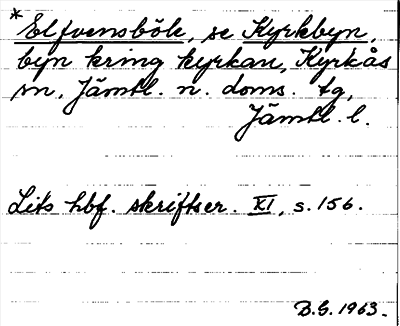 * Elfvensbök, se Kyrkbyn,
byn kring kyrkan, Kyrkås
sn, Jämtl. n. doms. tg,
Jämtl. l.
Lits hbf. skriftser. XI, s. 156.
B.G. 1963.